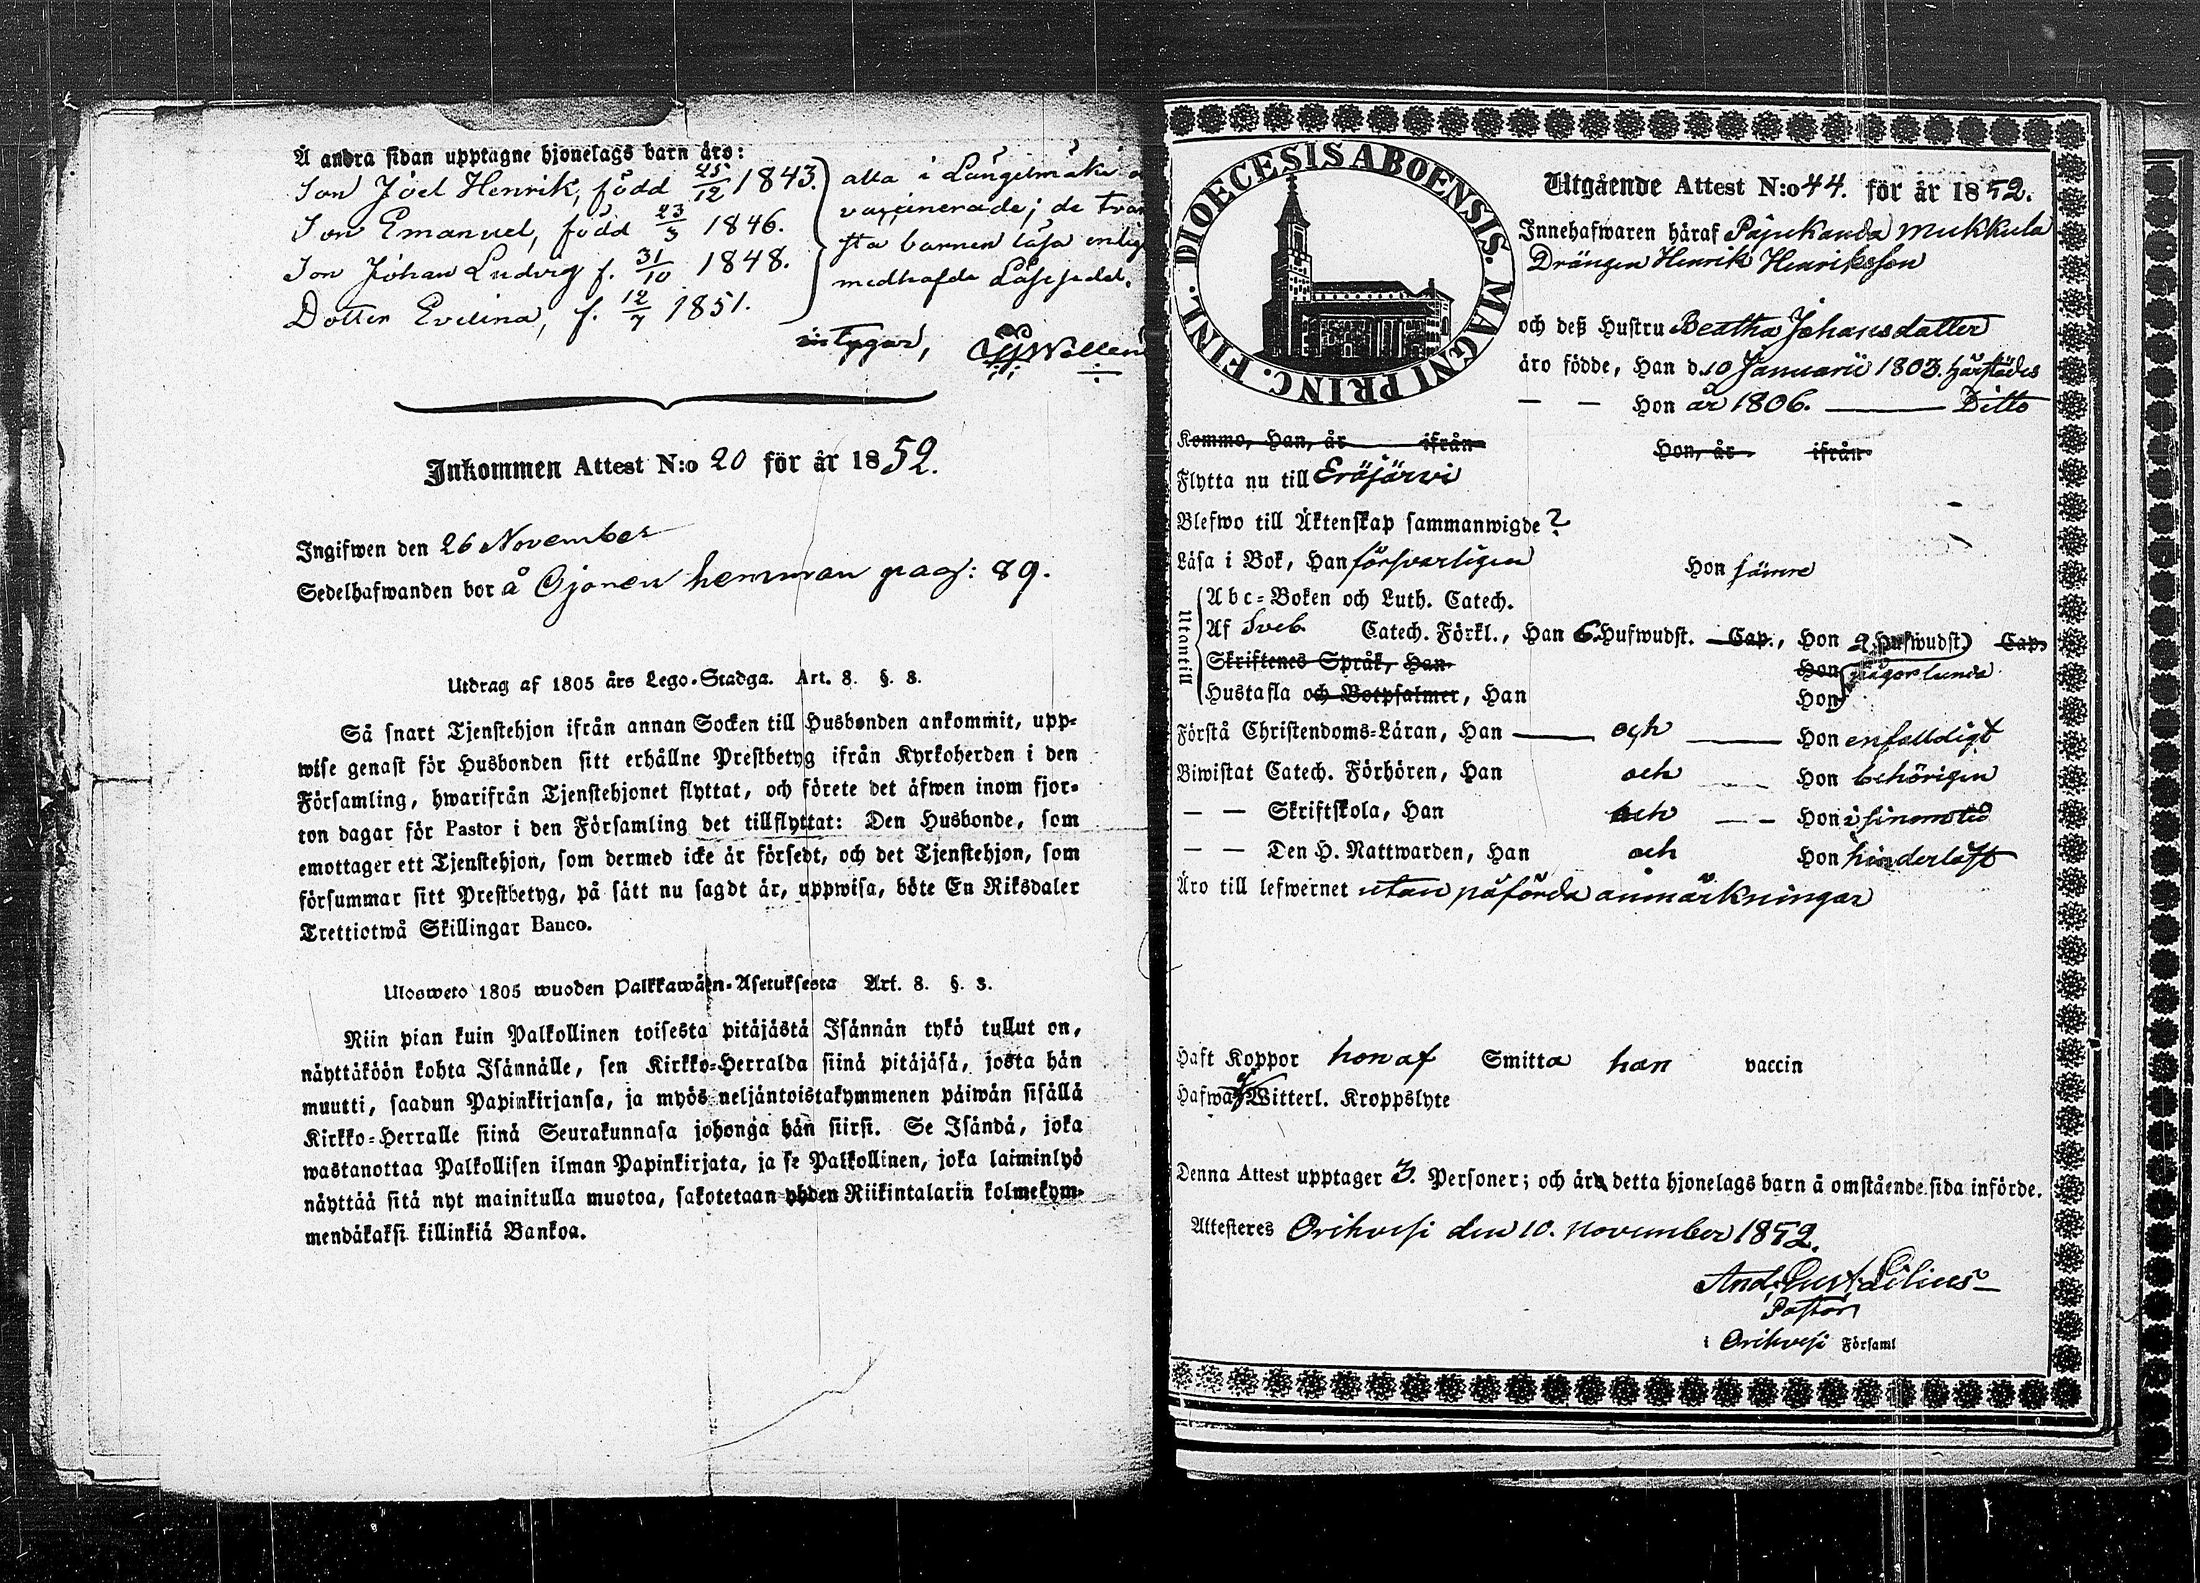 Å andra sidan upptagne hjonelags barn äro:
Son Joel Henrik, född 25/12 1843.
Son Emanuel, född 23/3 1846.
Son Johan Ludvig f. 31/10 1848.
Dotter Evelina, f. 12/7 1851.
alla i Längelmäki
vaccinerade; de
sta barnen läsa enlig
medhafde Läsesedel.
intygar,
Inkommen Attest N:o 20 för år 1852.
Ingifwen den 26 November
Sedelhafwanden bor å Ojonen hemman pag: 89.
Utdrag af 1805 års Lego-Stadga. Art. 8. §. 3.
Så snart Tjenstehjon ifrån annan Socken till Husbonden ankommit, upp-
wise genast för Husbonden sitt erhållne Prestbetyg ifrån Kyrkoherden i den
Församling, hwarifrån Tjenstehjonet flyttat, och förete det äfwen inom fjor-
ton dagar för Pastor i den Församling det tillflyttat: Den Husbonde, som
emottager ett Tjenstehjon, som dermed icke är försedt, och det Tjenstehjon, som
försummar sitt Prestbetyg, på sätt nu sagdt är, uppwisa, böte En Riksdaler
Trettiotwå Skillingar Banco.
Ulosweto 1805 wuoden Palkkawäen-Asetuksesta Art. 8. §. 3.
Niin pian kuin Palkollinen toisesta pitäjästä Isännän tykö tullut on,
näyttäköön kohta Isännälle, sen Kirkko-Herralda siinä pitäjäsä, josta hän
muutti, saadun Papinkirjansa, ja myös neljäntoistakymmenen päiwän sisällä
Kirkko-Herralle siinä Seurakunnasa johonga hän siirsi. Se Isändä, joka
wastanottaa Palkollisen ilman Papinkirjata, ja se Palkollinen, joka laiminlyö
näyttää sitä nyt mainitulla muotoa, sakotetaan yhden Riikintalarin kolmekym-
mendäkaksi killinkiä Bankoa.
DIOECESIS ABOENSIS. MAGNI PRINC. FINL.
Utgående Attest N:o 44. för år 1852.
Innehafwaren häraf Pajukanda Mukkula
Drängen Henrik Henriksson
och deß Hustru Beatha Johansdatter
äro födde, Han d. 10 Januarii 1803. härstädes
— — Hon år 1806. — Ditto
Kommo, Han, år ifrån Hon, år ifrån
Flytta nu till Eräjärvi
Blefwo till Äktenskap sammanwigde ?
Läsa i Bok, Han försvarligen Hon sämre
Utantill
Abc-Boken och Luth. Catech.
Af Sveb. Catech. Förkl., Han 6 Hufwudst. Cap., Hon 2 Hufwudst. Cap.
Skriftenes Språk, Han Hon någorlunda
Hustafla och Botpsalmer, Han Hon
Förstå Christendoms-Läran, Han — och — Hon enfalldigt
Biwistat Catech. Förhören, Han och Hon behörigen
— — Skriftskola, Han och — — Hon i sinom tid
— — Den H. Nattwarden, Han och Hon hinderlöst
Äro till lefwernet utan påförda anmärkningar
Haft Koppor hon af Smitta han vaccin
Hafwa ej Witterl. Kroppslyte
Denna Attest upptager 3. Personer; och äro detta hjonelags barn å omstående sida införde.
Attesteres Orihvesi den 10. November 1852.
And. Gust. Lilius
Pastor
i Orihvesi Församl